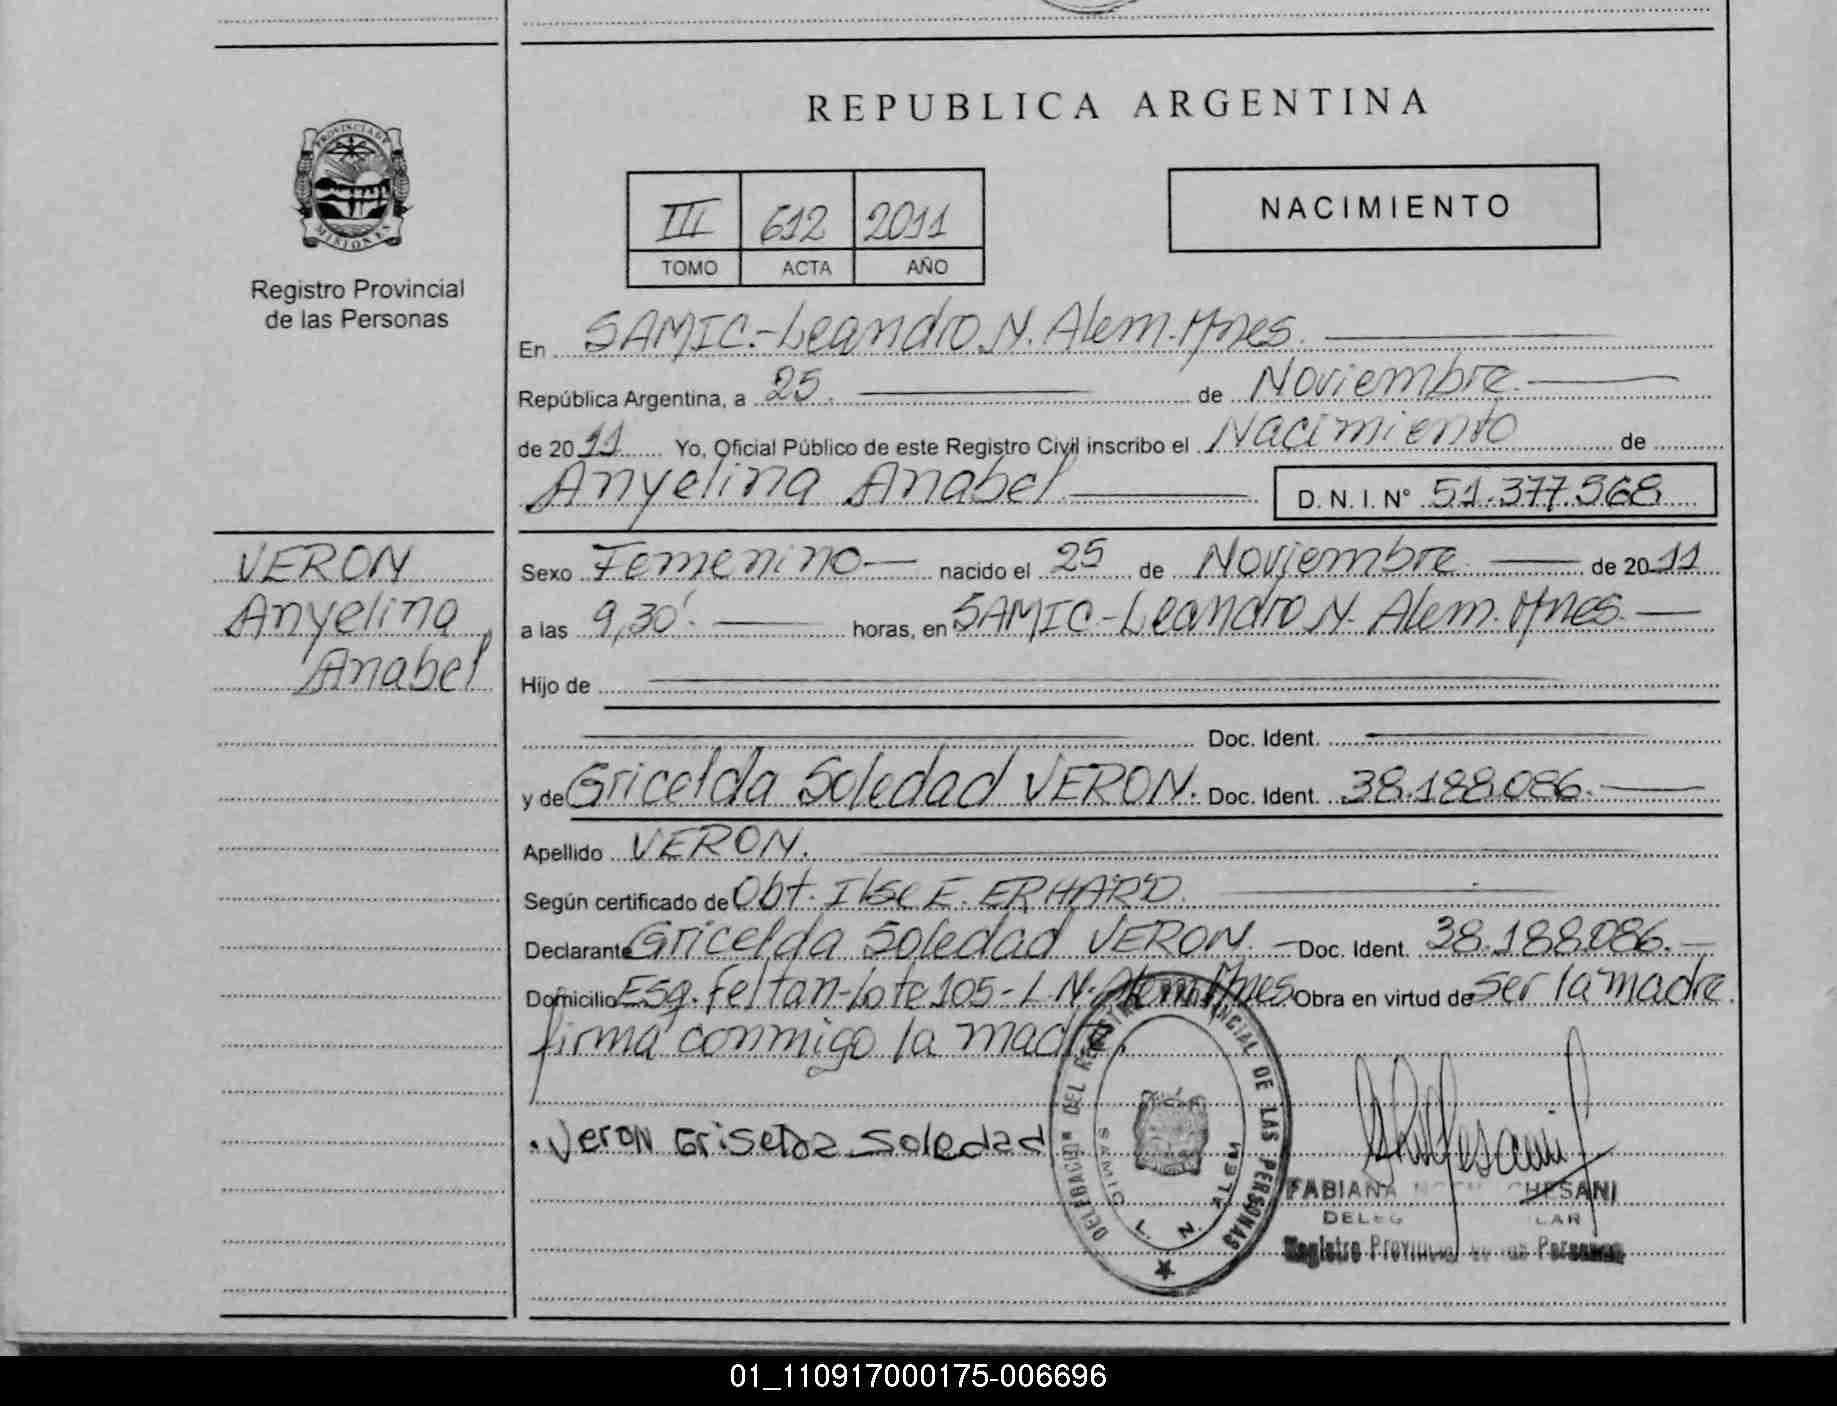 PROVINCIA DE
MISIONES
Registro Provincial
de las Personas
VERON
Anyelina
Anabel
REPUBLICA ARGENTINA
III 612 2011
TOMO ACTA AÑO
NACIMIENTO
En SAMIC.-Leandro N. Alem. Mnes.
República Argentina, a 25. de Noviembre.
de 2011 Yo, Oficial Público de este Registro Civil inscribo el Nacimiento de
Anyelina Anabel D. N. I. N° 51.377.568
Sexo Femenino nacido el 25 de Noviembre de 2011
a las 9,30'. horas, en SAMIC-Leandro N. Alem. Mnes.
Hijo de
Doc. Ident.
y de Gricelda Soledad VERON. Doc. Ident. 38.188.086.
Apellido VERON.
Según certificado de Obt. Ilse E. ERHARD.
Declarante Gricelda Soledad VERON. Doc. Ident. 38.188.086.
Domicilio Esq. Feltan-Lote 105-L N. Alem. Mnes. Obra en virtud de ser la madre.
firma conmigo la madre.
Veron Griselda Soledad
DELEGACION DEL REGISTRO PROVINCIAL DE LAS PERSONAS
SAMIC L. N. ALEM
FABIANA CHESANI
Registro Provincial de las Personas
01_110917000175-006696